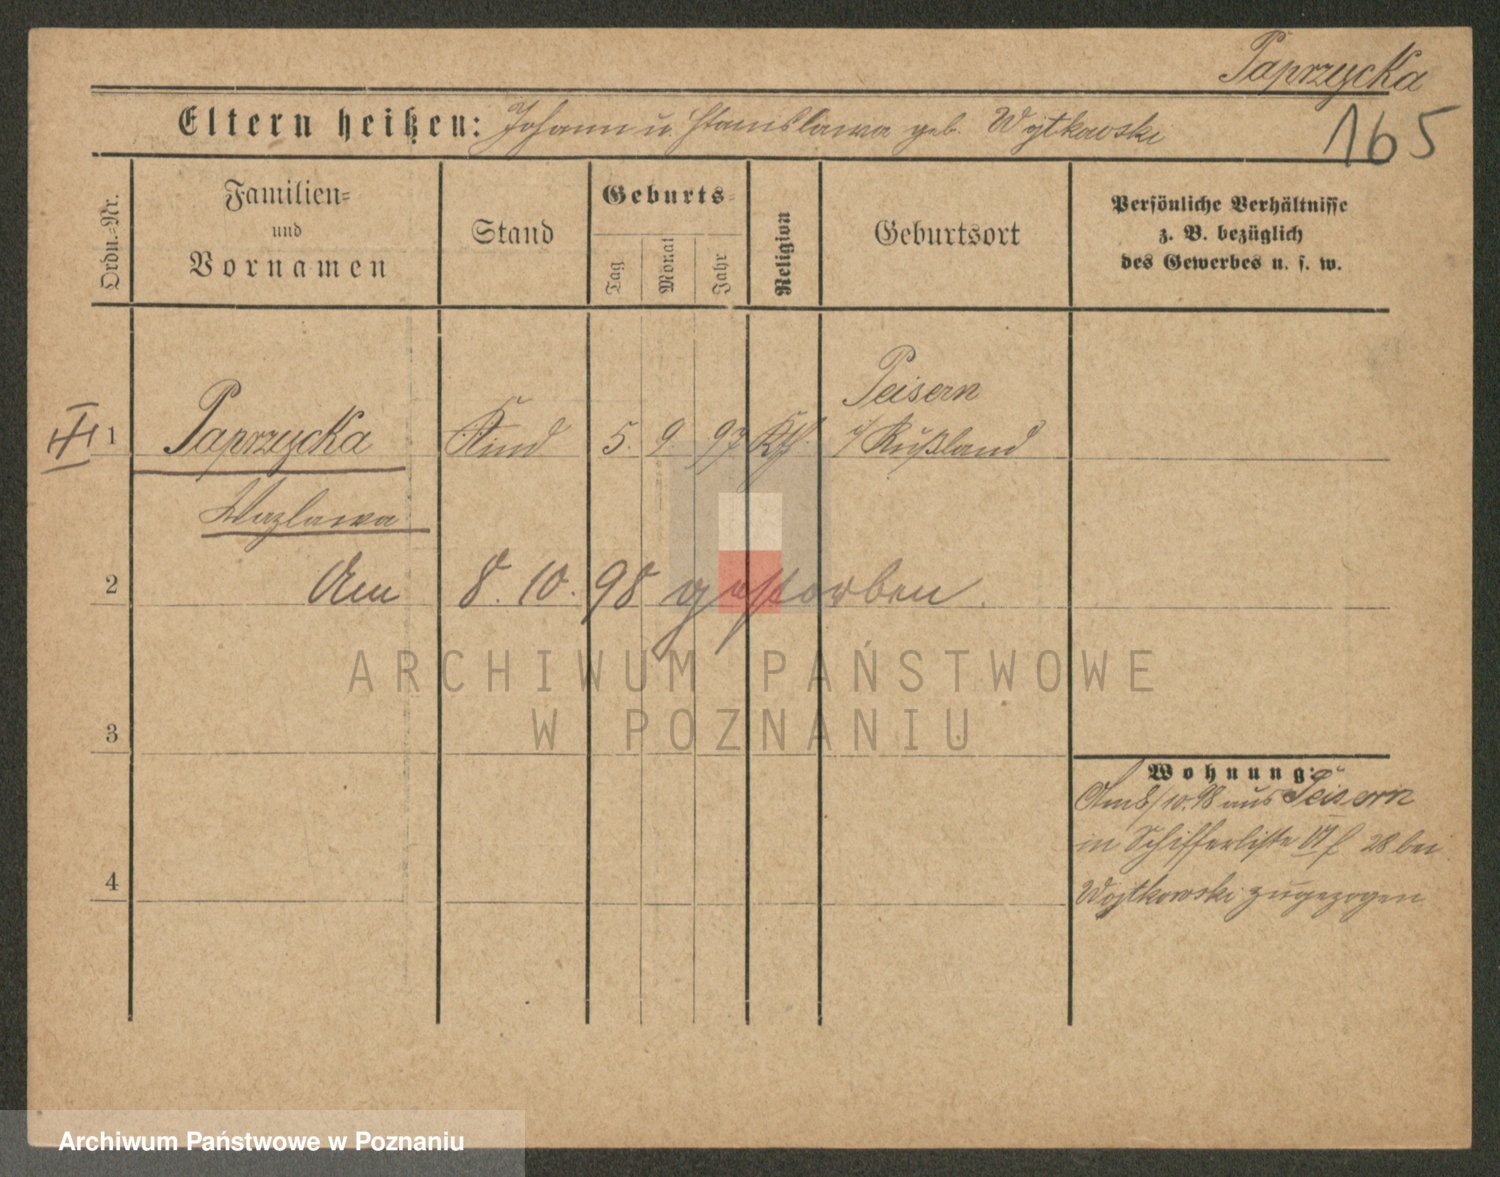 Paprzycka
165
Eltern heißen: Johann u. Stanislawa geb. Wojtkowski
Ordn.-Nr.
Familien-
und
Vornamen
Stand
Geburts-
Tag
Monat
Jahr
Religion
Geburtsort
Persönliche Verhältnisse
z. B. bezüglich
des Gewerbes u. s. w.
Peisern
1 Paprzycka Kind 5. 9. 97 Kth. i/ Rußland
Wazlawa
2 Am 8. 10. 98 gestorben.
ARCHIWUM PAŃSTWOWE
W POZNANIU
3
Wohnung:
Am 8/10.98 aus Peisern
in Schifferliste VI f 28 bei
4
Wojtkowski zugezogen
Archiwum Państwowe w Poznaniu